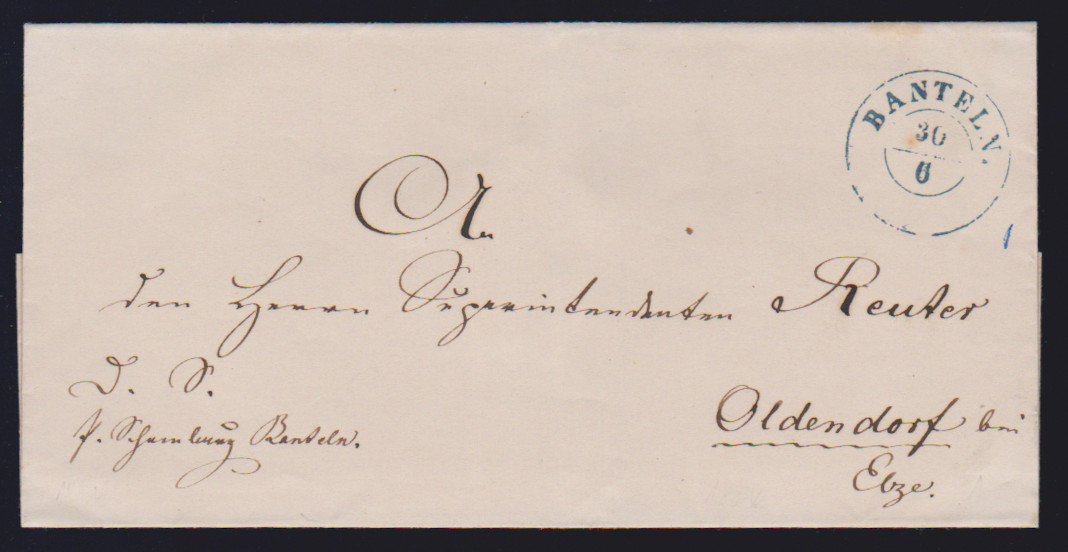 BANTELN.
30
6
An
den Herrn Superintendenten Reuter
D. S.
P. Banteln.
Oldendorf bei
Elze.